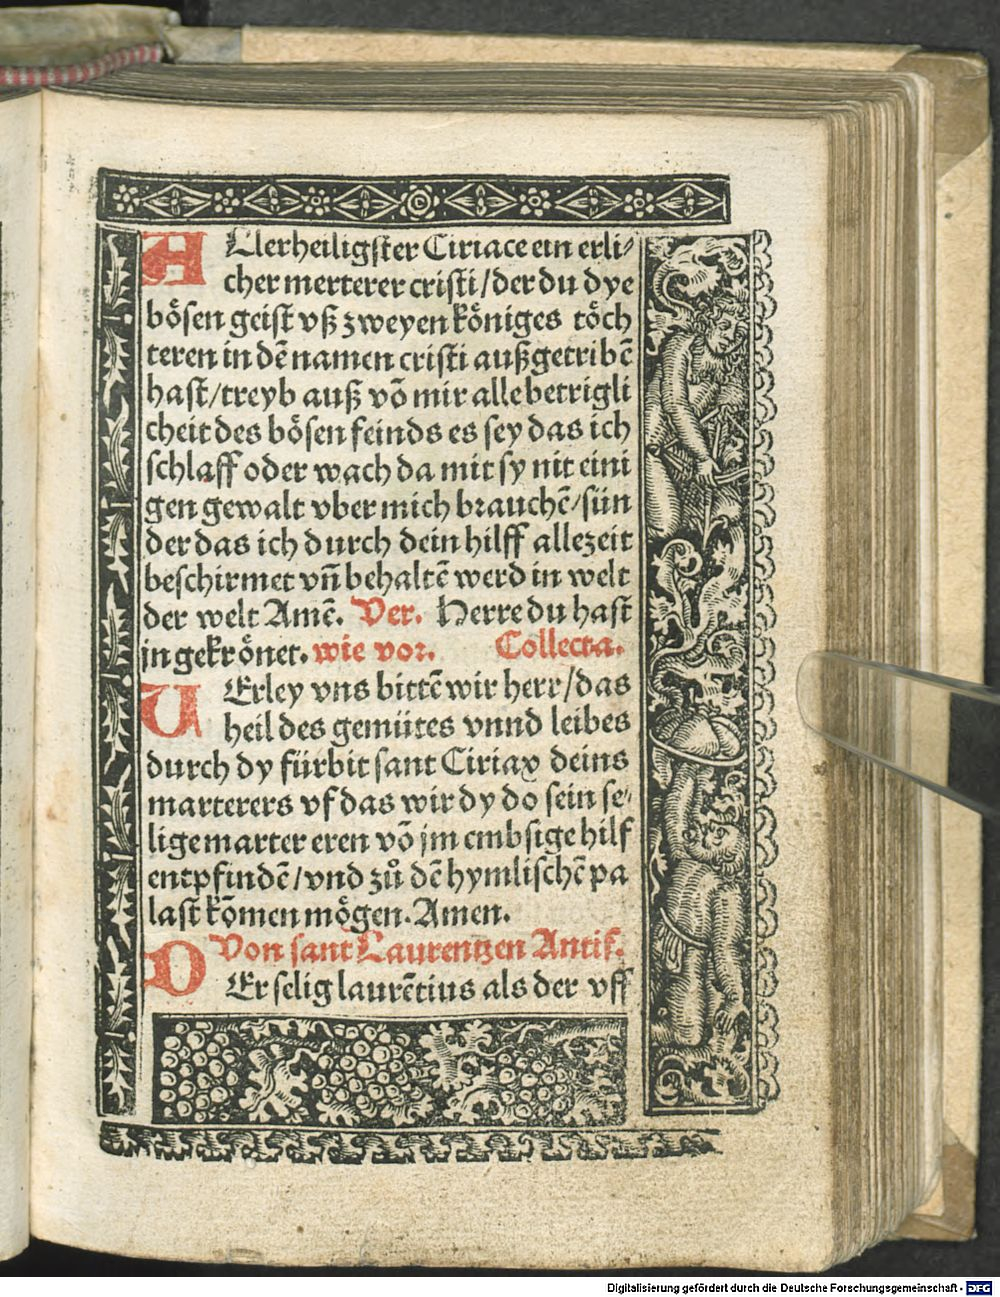 ALlerheiligster Ciriace ein erli⸗
cher merterer cristi/der du dye
boͤsen geist vß zweyen koͤniges toͤch
teren in dē namen cristi außgetribē
hast/treyb auß vō mir alle betrigli
cheit des boͤsen feinds es sey das ich
schlaff oder wach da mit sy nit eini
gen gewalt vber mich brauchē/sün
der das ich durch dein hilff allezeit
beschirmet vn̄ behaltē werd in welt
der welt Amē. Ver. Herre du hast
jn gekroͤnet. wie vor. Collecta.
VErley vns bittē wir herr/das
heil des gemütes vnnd leibes
durch dy fürbit sant Ciriax deins
marterers vf das wir dy do sein se⸗
lige marter eren vō jm embsige hilf
entpfindē/vnd zuͦ dē hymlischē pa
last kōmen moͤgen. Amen.
Von sant Laurentzen Antif.
DEr selig laurētius als der vff
Digitalisierung gefördert durch die Deutsche Forschungsgemeinschaft - DFG